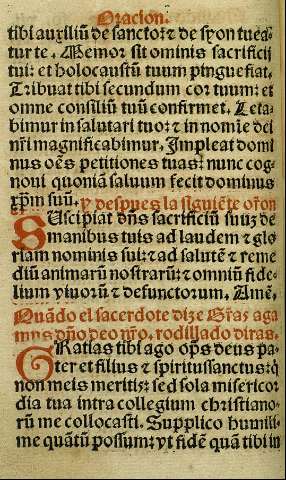 Oracion.
tibi auxiliũ de sancto: ⁊ de syon tuea⸗
tur te. Memor sit ominis sacrificij
tui: et holocaustũ tuum pingue fiat.
Tribuat tibi secundum cor tuum: et
omne consiliũ tuũ confirmet. Leta⸗
bimur in salutari tuo: ⁊ in nomĩe dei
nr̃i magnificabimur. Impleat domi
nus oẽs petitiones tuas: nunc cog⸗
noui quoniã saluum fecit dominus
xp̃m suũ. y despues la siguiẽte orõn
SUscipiat dñs sacrificiũ suuz de
manibus tuis ad laudem ⁊ glo
riam nominis sui: ⁊ ad salutẽ ⁊ reme
diũ animarũ nostrarũ: ⁊ omniũ fide⸗
lium viuorũ ⁊ defunctorum. Amẽ.
Quãdo el sacerdote dize Gr̃as aga
mus dño deo nr̃o. rodillado diras.
GRatias tibi ago op̃s deus pa⸗
ter et filius ⁊ spiritussanctus: q̃
non meis meritis: sed sola misericor
dia tua intra collegium christiano⸗
rũ me collocasti. Supplico humili⸗
me quãtũ possum: vt fidẽ quã tibi in